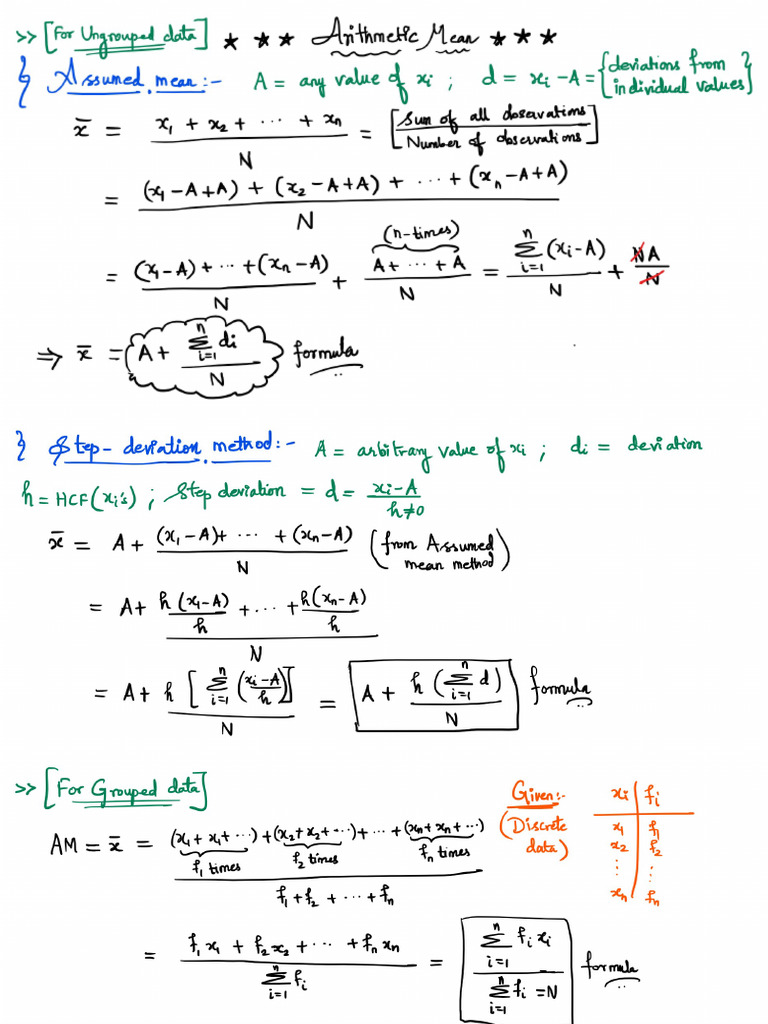 >> [For Ungrouped data] ★ ★ ★ Arithmetic Mean ★ ★ ★
} Assumed mean :- A = any value of xᵢ ; d = xᵢ - A = {deviations from individual values}
x̄ = (x₁ + x₂ + ··· + xₙ)/N = [Sum of all observations / Number of observations]
= ((x₁ - A + A) + (x₂ - A + A) + ··· + (xₙ - A + A))/N
= ((x₁ - A) + ··· + (xₙ - A))/N + (A + ··· + A (n-times))/N = (Σᵢ₌₁ⁿ (xᵢ - A))/N + NA/N
⇒ x̄ = A + (Σᵢ₌₁ⁿ di)/N formula
} Step-deviation method :- A = arbitrary value of xᵢ ; dᵢ = deviation
h = HCF(xᵢ's) ; Step deviation = d = (xᵢ - A)/h≠0
x̄ = A + ((x₁ - A) + ··· + (xₙ - A))/N (from Assumed mean method)
= A + (h(x₁ - A)/h + ··· + h(xₙ - A)/h)/N
= A + h [Σᵢ₌₁ⁿ ((xᵢ - A)/h)]/N = A + h (Σᵢ₌₁ⁿ d)/N formula
>> [For Grouped data]
Given :- (Discrete data)
xᵢ | fᵢ
x₁ | f₁
x₂ | f₂
⋮ | ⋮
xₙ | fₙ
AM = x̄ = ((x₁ + x₁ + ···) f₁ times + (x₂ + x₂ + ···) f₂ times + ··· + (xₙ + xₙ + ···) fₙ times)/(f₁ + f₂ + ··· + fₙ)
= (f₁x₁ + f₂x₂ + ··· + fₙxₙ)/(Σᵢ₌₁ⁿ fᵢ) = (Σᵢ₌₁ⁿ fᵢxᵢ)/(Σᵢ₌₁ⁿ fᵢ = N) formula